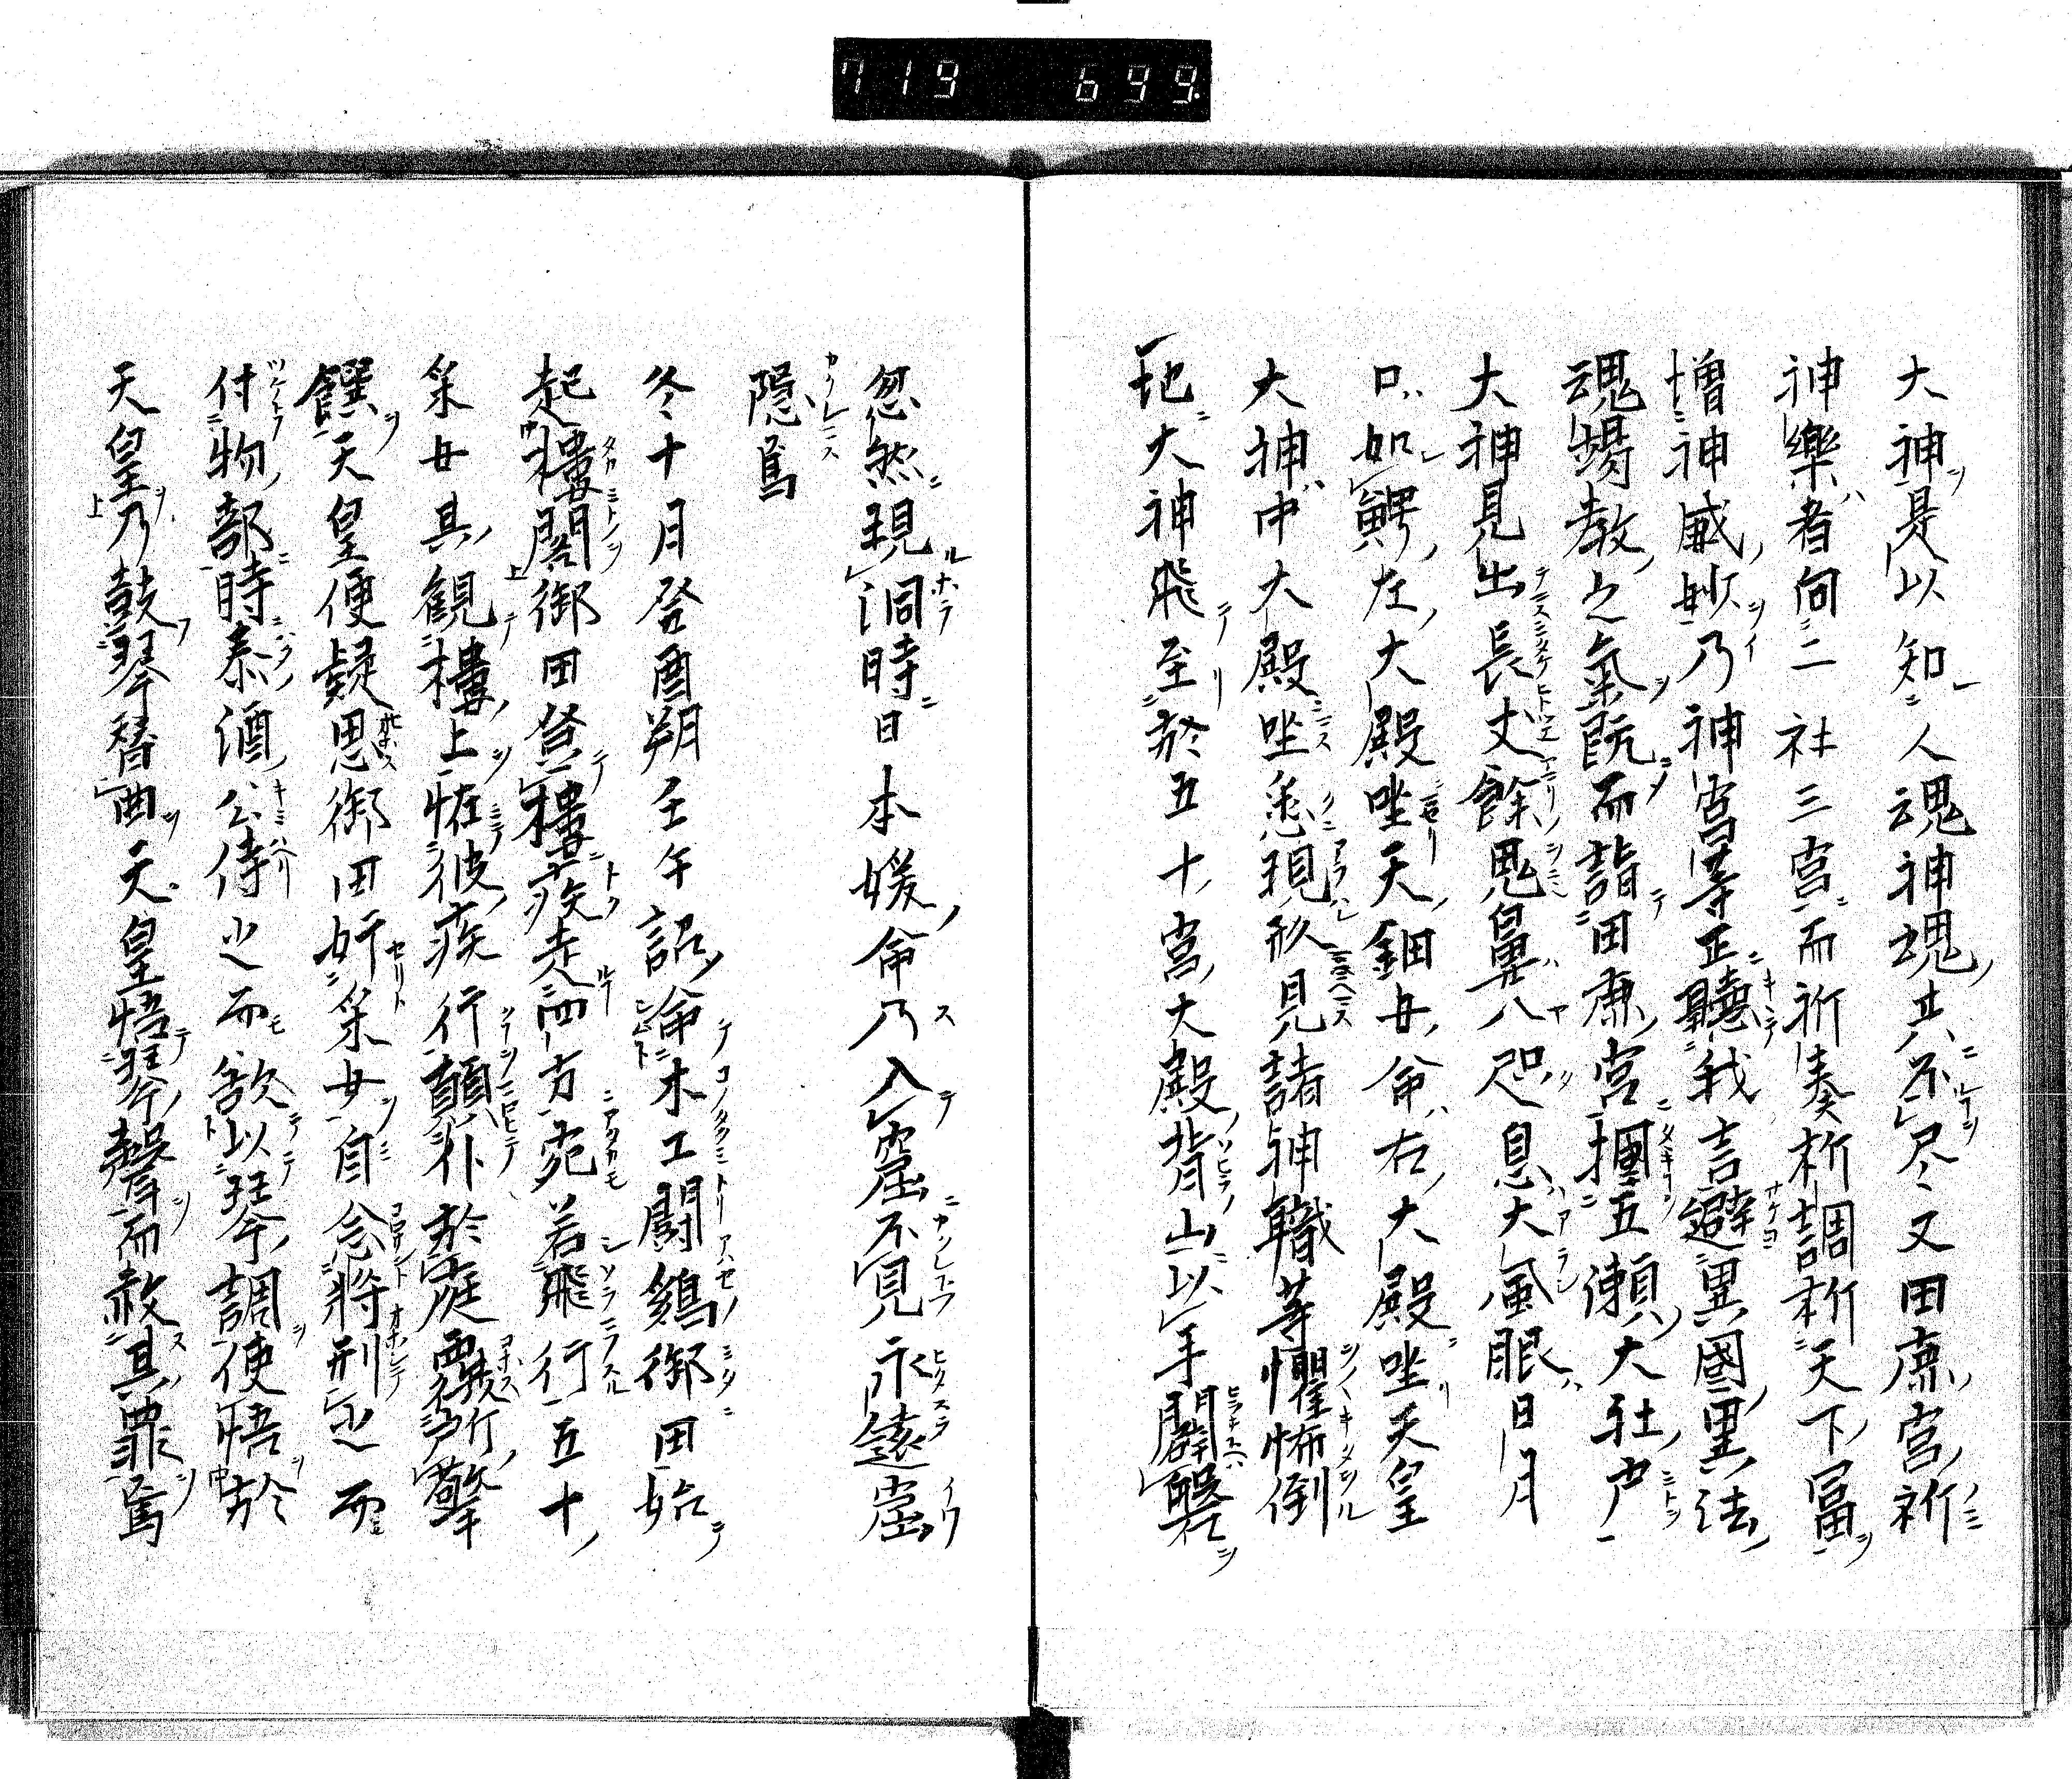 719 699.
大神是以知人魂神魂共不尽又田庶宮祈
神樂者向二社三宮而祈奏祈調祈天下冨
増神威妙乃神宮等正聽我言避異國異法
魂場教之氣既而詣田庶宮摑五瀬大社戸
大神見出長丈餘鬼鼻八咫息大風眼日月
口如鰐左大殿坐天鈿女命右大殿坐天皇
大神中大殿坐悉現形見諸神職等懼怖倒
地大神飛至於五十宮大殿背山以手闢磐
忽然現洞時日本媛命乃入窟不見永遠窟
隠焉
冬十月癸酉朔壬午詔命木工闘鷄御田始
起樓閣御田登樓疾走四方宛若飛行五十
采女其観樓上恠彼疾行顛仆於庭覆所擎
饌天皇便疑思御田奸采女自念將刑之而
付物部時秦酒公侍之而欲以琴調使悟於
天皇乃鼓琴替曲天皇悟琴聲而赦其罪焉